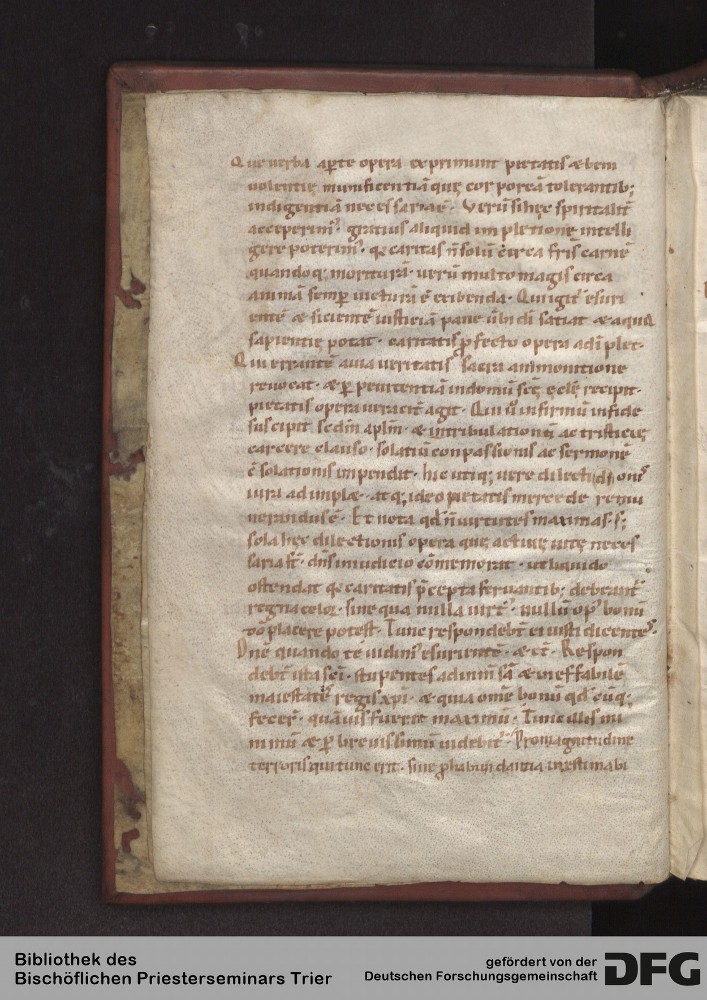 Que verba aꝑte opera exprimunt pietatis & beni
uolentię munificentiā quę corporeā tolerantib;
indigentiā necessariaē. Verū si hęc spiritalit̄
acceperim᷒. gratius aliquid impletione intelli
gere poterim᷒. q̄ caritas n̄ solū c̄irca fr̄is carnē
quandoq; morituрā. verū multo magis circa
animā semꝑ uicturā ē exibenda. Qui igit̄ esuri
entē & sicientē iusticiā pane ūbi dī satiat & aqua
sapientię potat. caritatis ꝓfecto opera adīplet.
Qui errantē a uia ueritatis sacra ammonitione
reuocat. & ꝑ penitentiā in domū scē ęcclę recipit.
pietatis opera ueracit̄ agit. Qui infirmū in fide
suscipit sedm̄ aplm̄. & in tribulationū ac tristicię
carcere clauso. solatiū conpassionis ac sermonē
c̄solationis impendit. hic utiq; vere dilectionis
iura adimplet. atq; ideo pietatis mercede remu
nerandus ē. Et nota qd̄ n̄ uirtutes maximas. s;
sola hęc dilectionis opera quę actiuę uitę neces
saria st̄. dn̄s in iudicio cōmemorat. ut liquido
ostendat q̄ caritatis p̄cepta seruantib; debeant᷒
regna celoꝝ. sine qua nulla uirt᷒. nullū op᷒ bonū
dō placere potest. Tunc respondebt̄ ei iusti dicentes.
Dn̄e quando te uidim᷒ esurientē. & cet̄. Respon
debt̄ ista sc̄i. stupentes & ineffabilē
maiestatē regis xp̄i. & quia om̄e bonū qd̄ cūq;
fecer̄. quāuis fuerit maximū. Tunc illis mi
nimū & ꝑ breuissimū uidebit̄. Pro magnitudine
terroris qui tunc erit. siue ꝓ habundantia inestimabi
Bibliothek des
Bischöflichen Priesterseminars Trier
gefördert von der
Deutschen Forschungsgemeinschaft
DFG